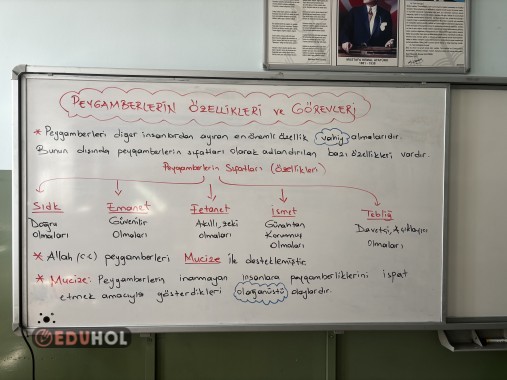 MUSTAFA KEMAL ATATÜRK
1881 - 1938
PEYGAMBERLERİN ÖZELLİKLERİ ve GÖREVLERİ
* Peygamberleri diğer insanlardan ayıran en önemli özellik vahiy almalarıdır.
Bunun dışında peygamberlerin sıfatları olarak adlandırılan bazı özellikleri vardır.
Peygamberlerin Sıfatları (Özellikleri)
Sıdk Emanet Fetanet İsmet Tebliğ
Doğru Güvenilir Akıllı, zeki Günahtan Davetçi, Açıklayıcı
Olmaları Olmaları olmaları Korunmuş Olmaları
Olmaları
* Allah (cc) peygamberleri Mucize ile desteklemiştir
* Mucize: Peygamberlerin inanmayan insanlara peygamberliklerini ispat
etmek amacıyla gösterdikleri olağanüstü olaylardır.
EDUHOL